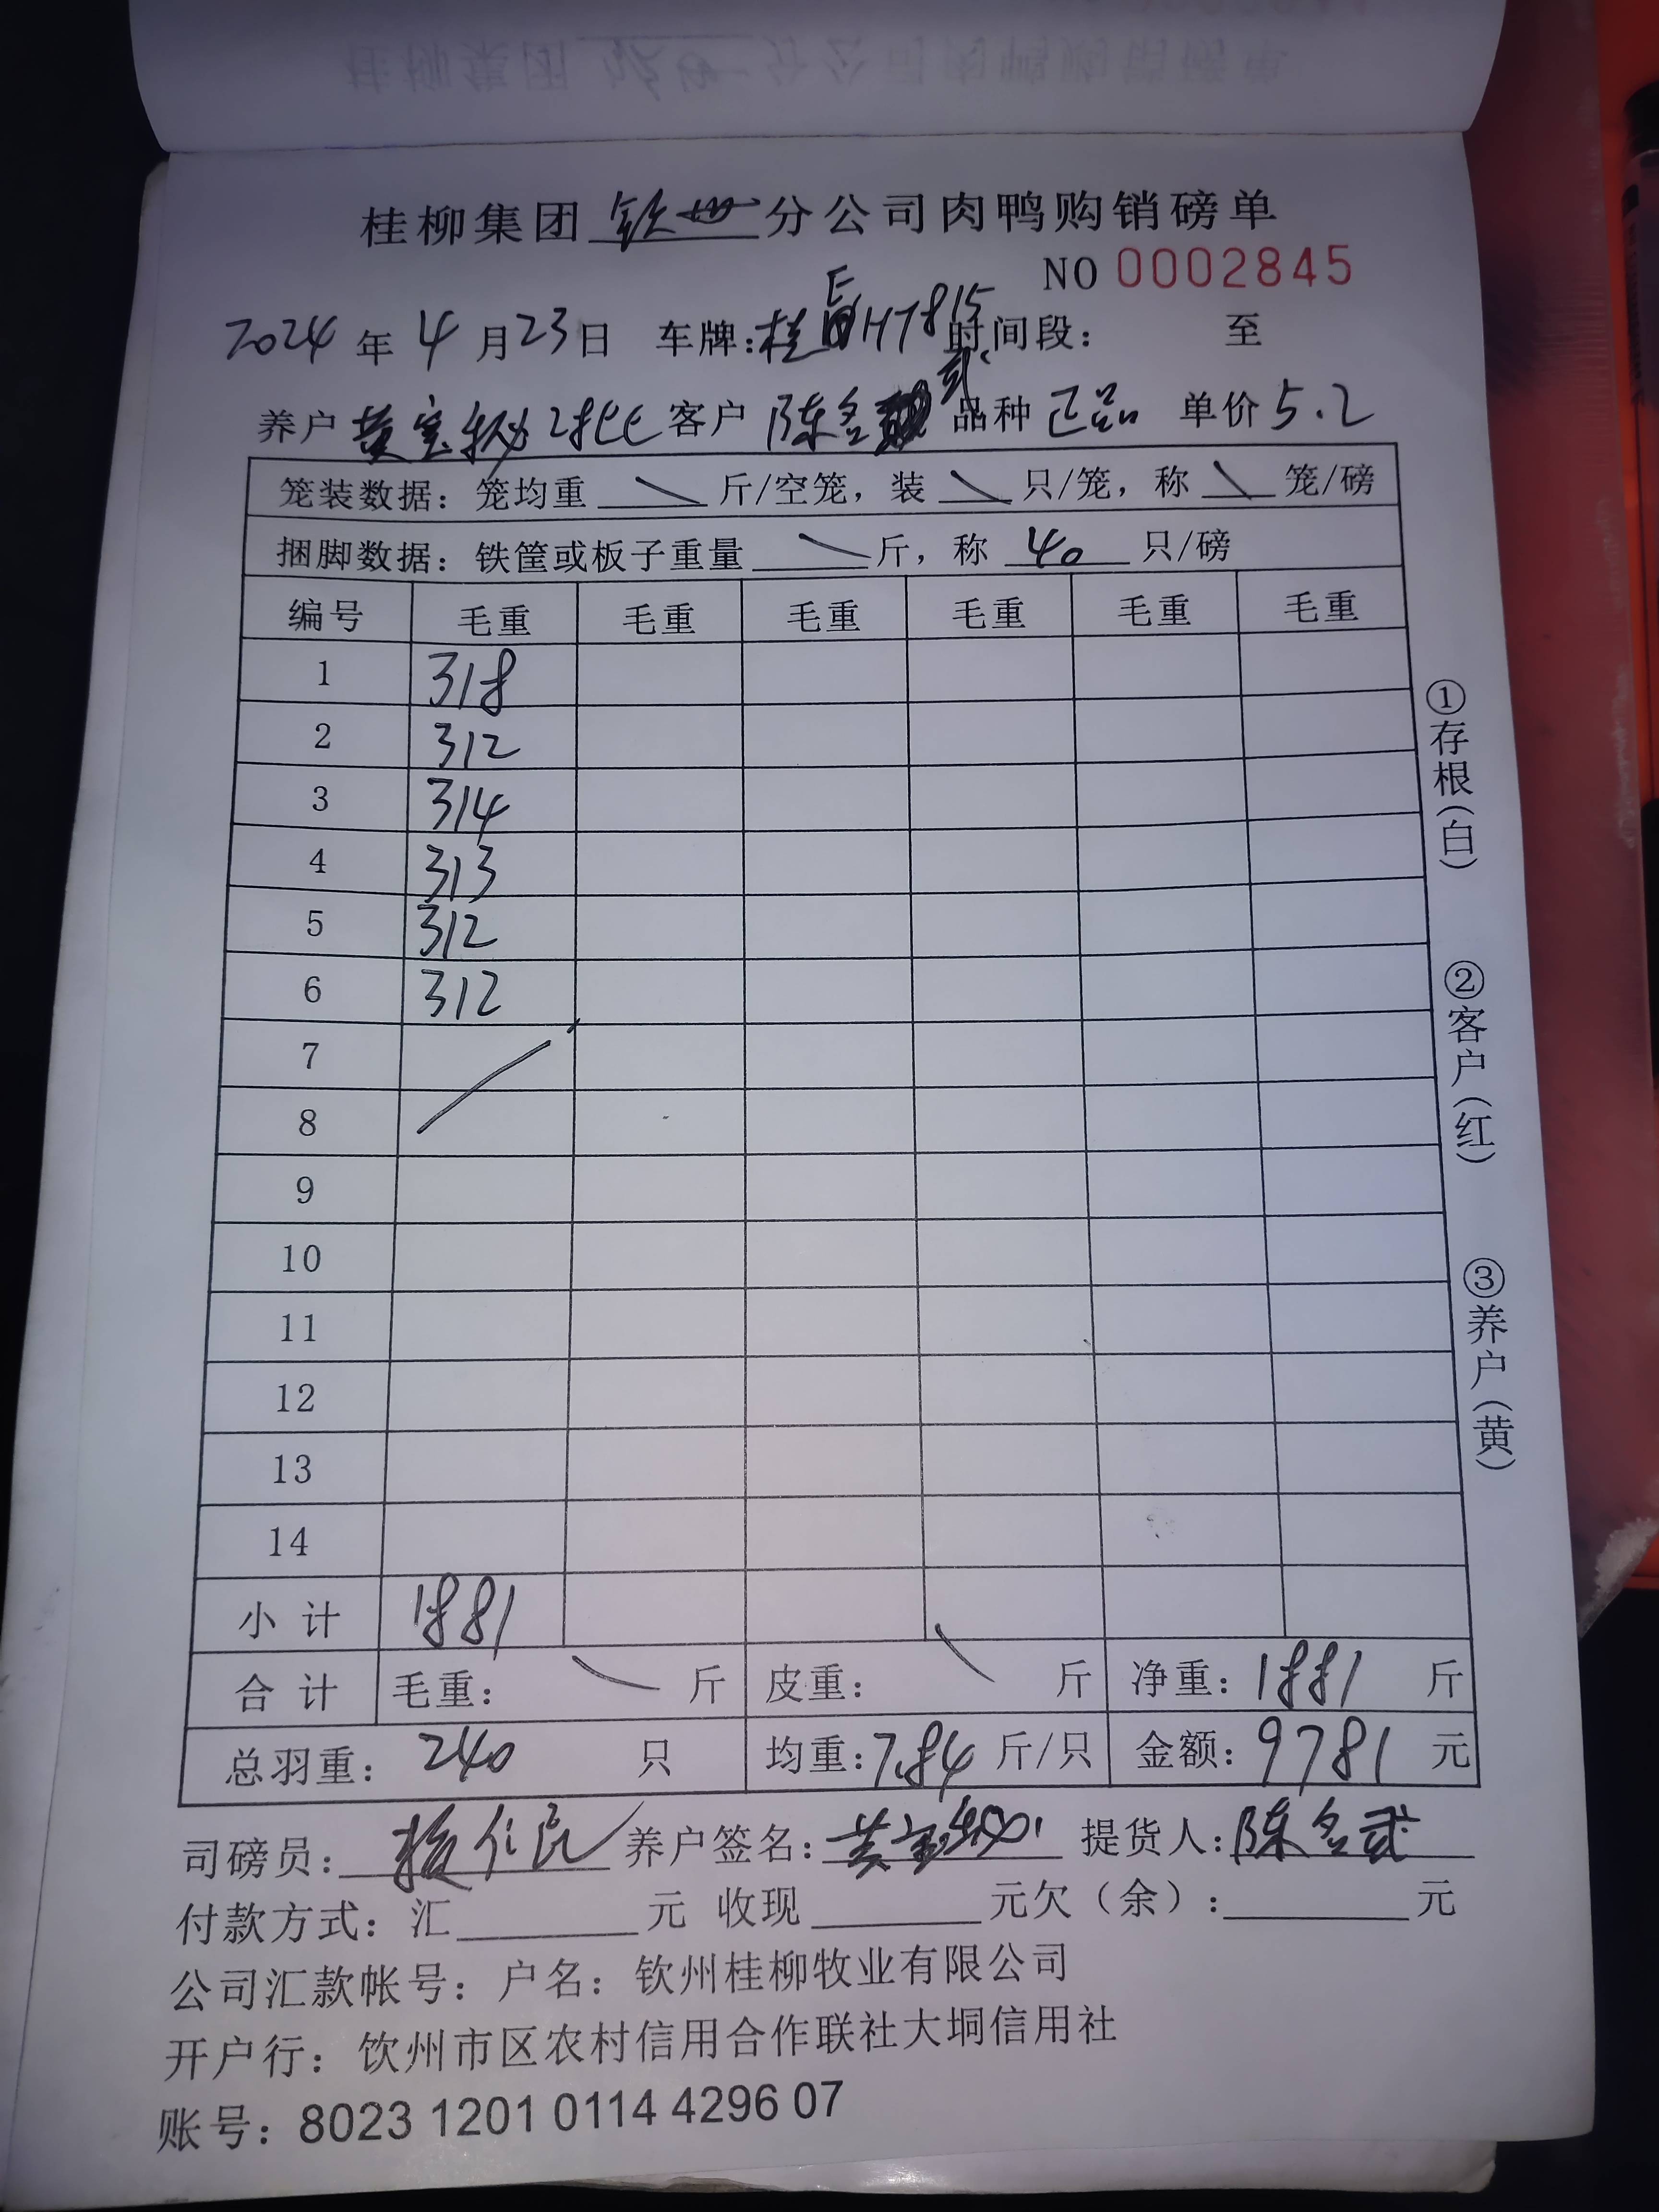 桂柳集团 钦州 分公司肉鸭购销磅单
NO 0002845
2024 年 4 月 23 日 车牌: 桂E HT815 时间段: 至
养户 黄宝 2批 客户 陈名武 品种 正品 单价 5.2
笼装数据: 笼均重 斤/空笼, 装 只/笼, 称 笼/磅
捆脚数据: 铁筐或板子重量 斤, 称 40 只/磅
编号 毛重 毛重 毛重 毛重 毛重 毛重
1 318
2 312
3 314
4 313
5 312
6 312
7
8
9
10
11
12
13
14
小计 1881
合计 毛重: 斤 皮重: 斤 净重: 1881 斤
总羽重: 240 只 均重: 7.84 斤/只 金额: 9781 元
司磅员: 仁良 养户签名: 黄宝 提货人: 陈名武
付款方式: 汇 元 收现 元欠(余): 元
公司汇款帐号: 户名: 钦州桂柳牧业有限公司
开户行: 钦州市区农村信用合作联社大垌信用社
账号: 8023 1201 0114 4296 07
①存根(白)
②客户(红)
③养户(黄)